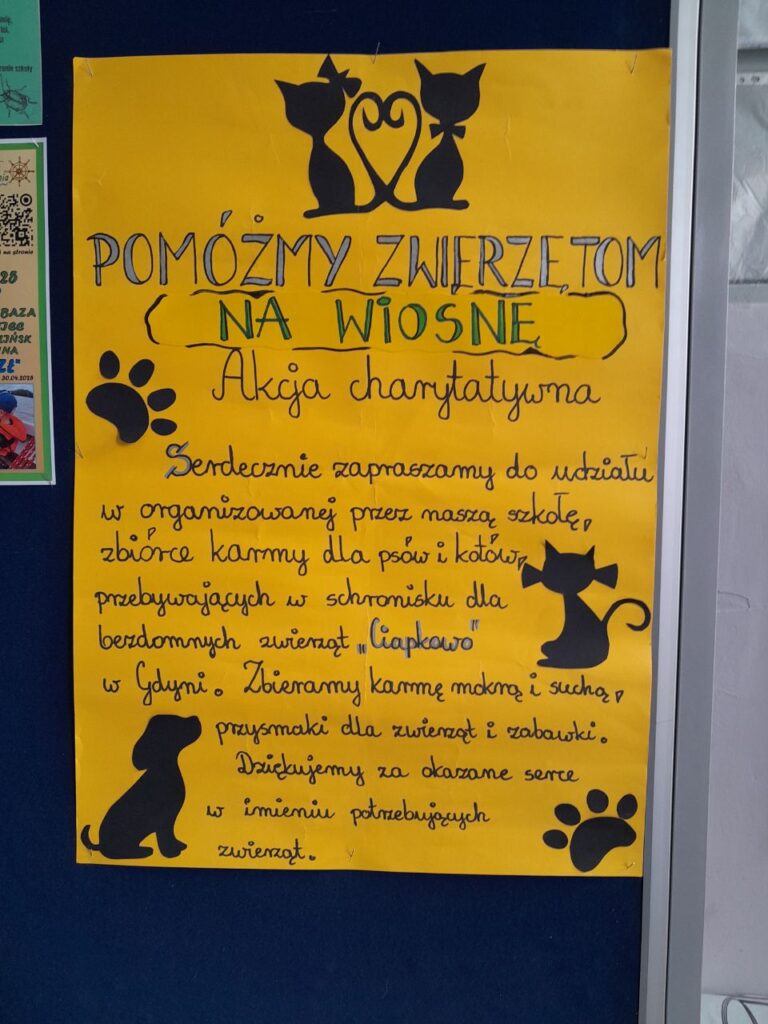 zenie szkoły
nia
na stronie
25
BAZA
IŃSK
INA
ZŁ"
30.04.2025
POMÓŻMY ZWIERZĘTOM
NA WIOSNĘ
Akcja charytatywna
Serdecznie zapraszamy do udziału
w organizowanej przez naszą szkołę,
zbiórce karmy dla psów i kotów,
przebywających w schronisku dla
bezdomnych zwierząt „Ciapkowo"
w Gdyni. Zbieramy karmę mokrą i suchą,
przysmaki dla zwierząt i zabawki.
Dziękujemy za okazane serce
w imieniu potrzebujących
zwierząt.